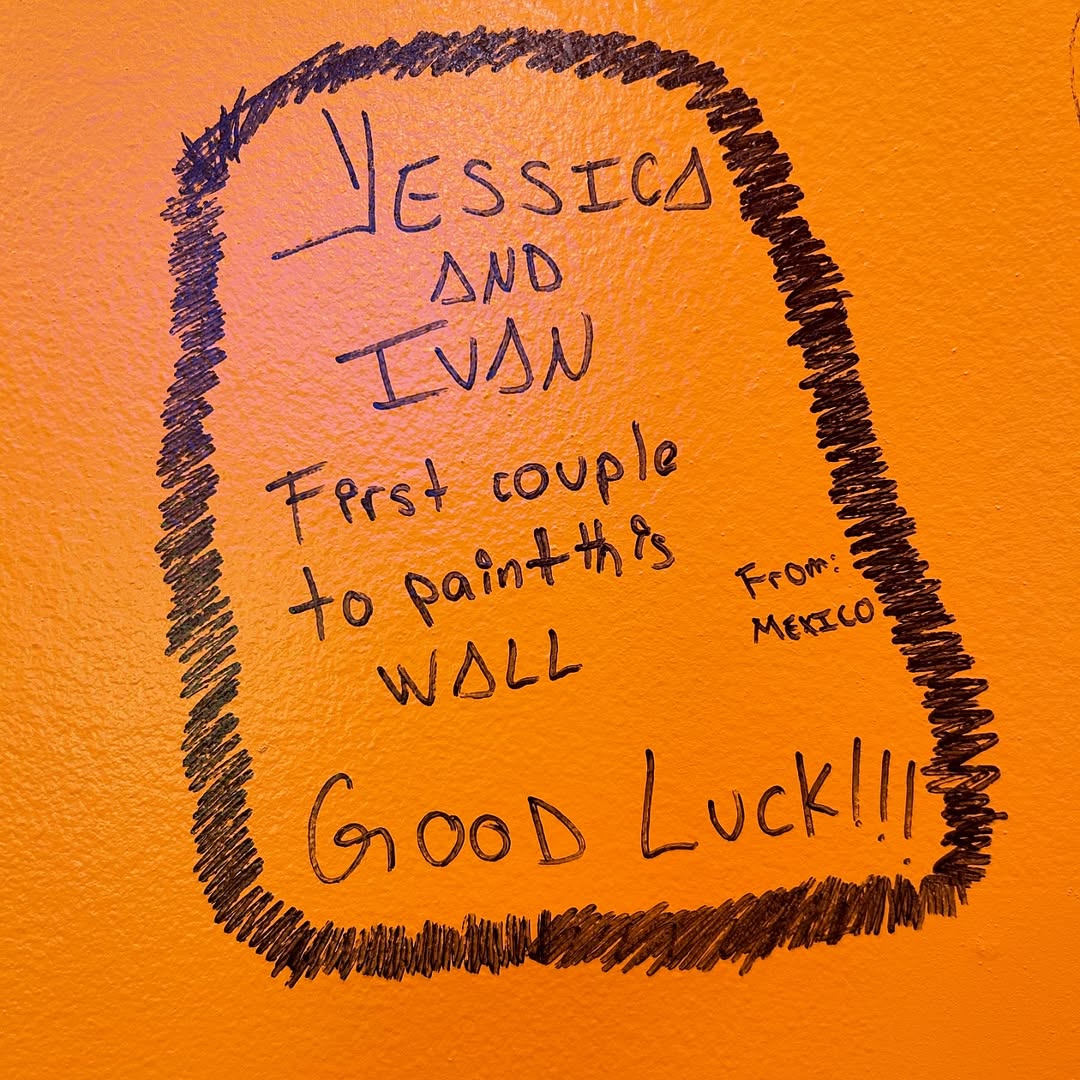 YESSICA
AND
IVAN
First couple
to paint this
WALL
From:
MEXICO
GOOD LUCK!!!